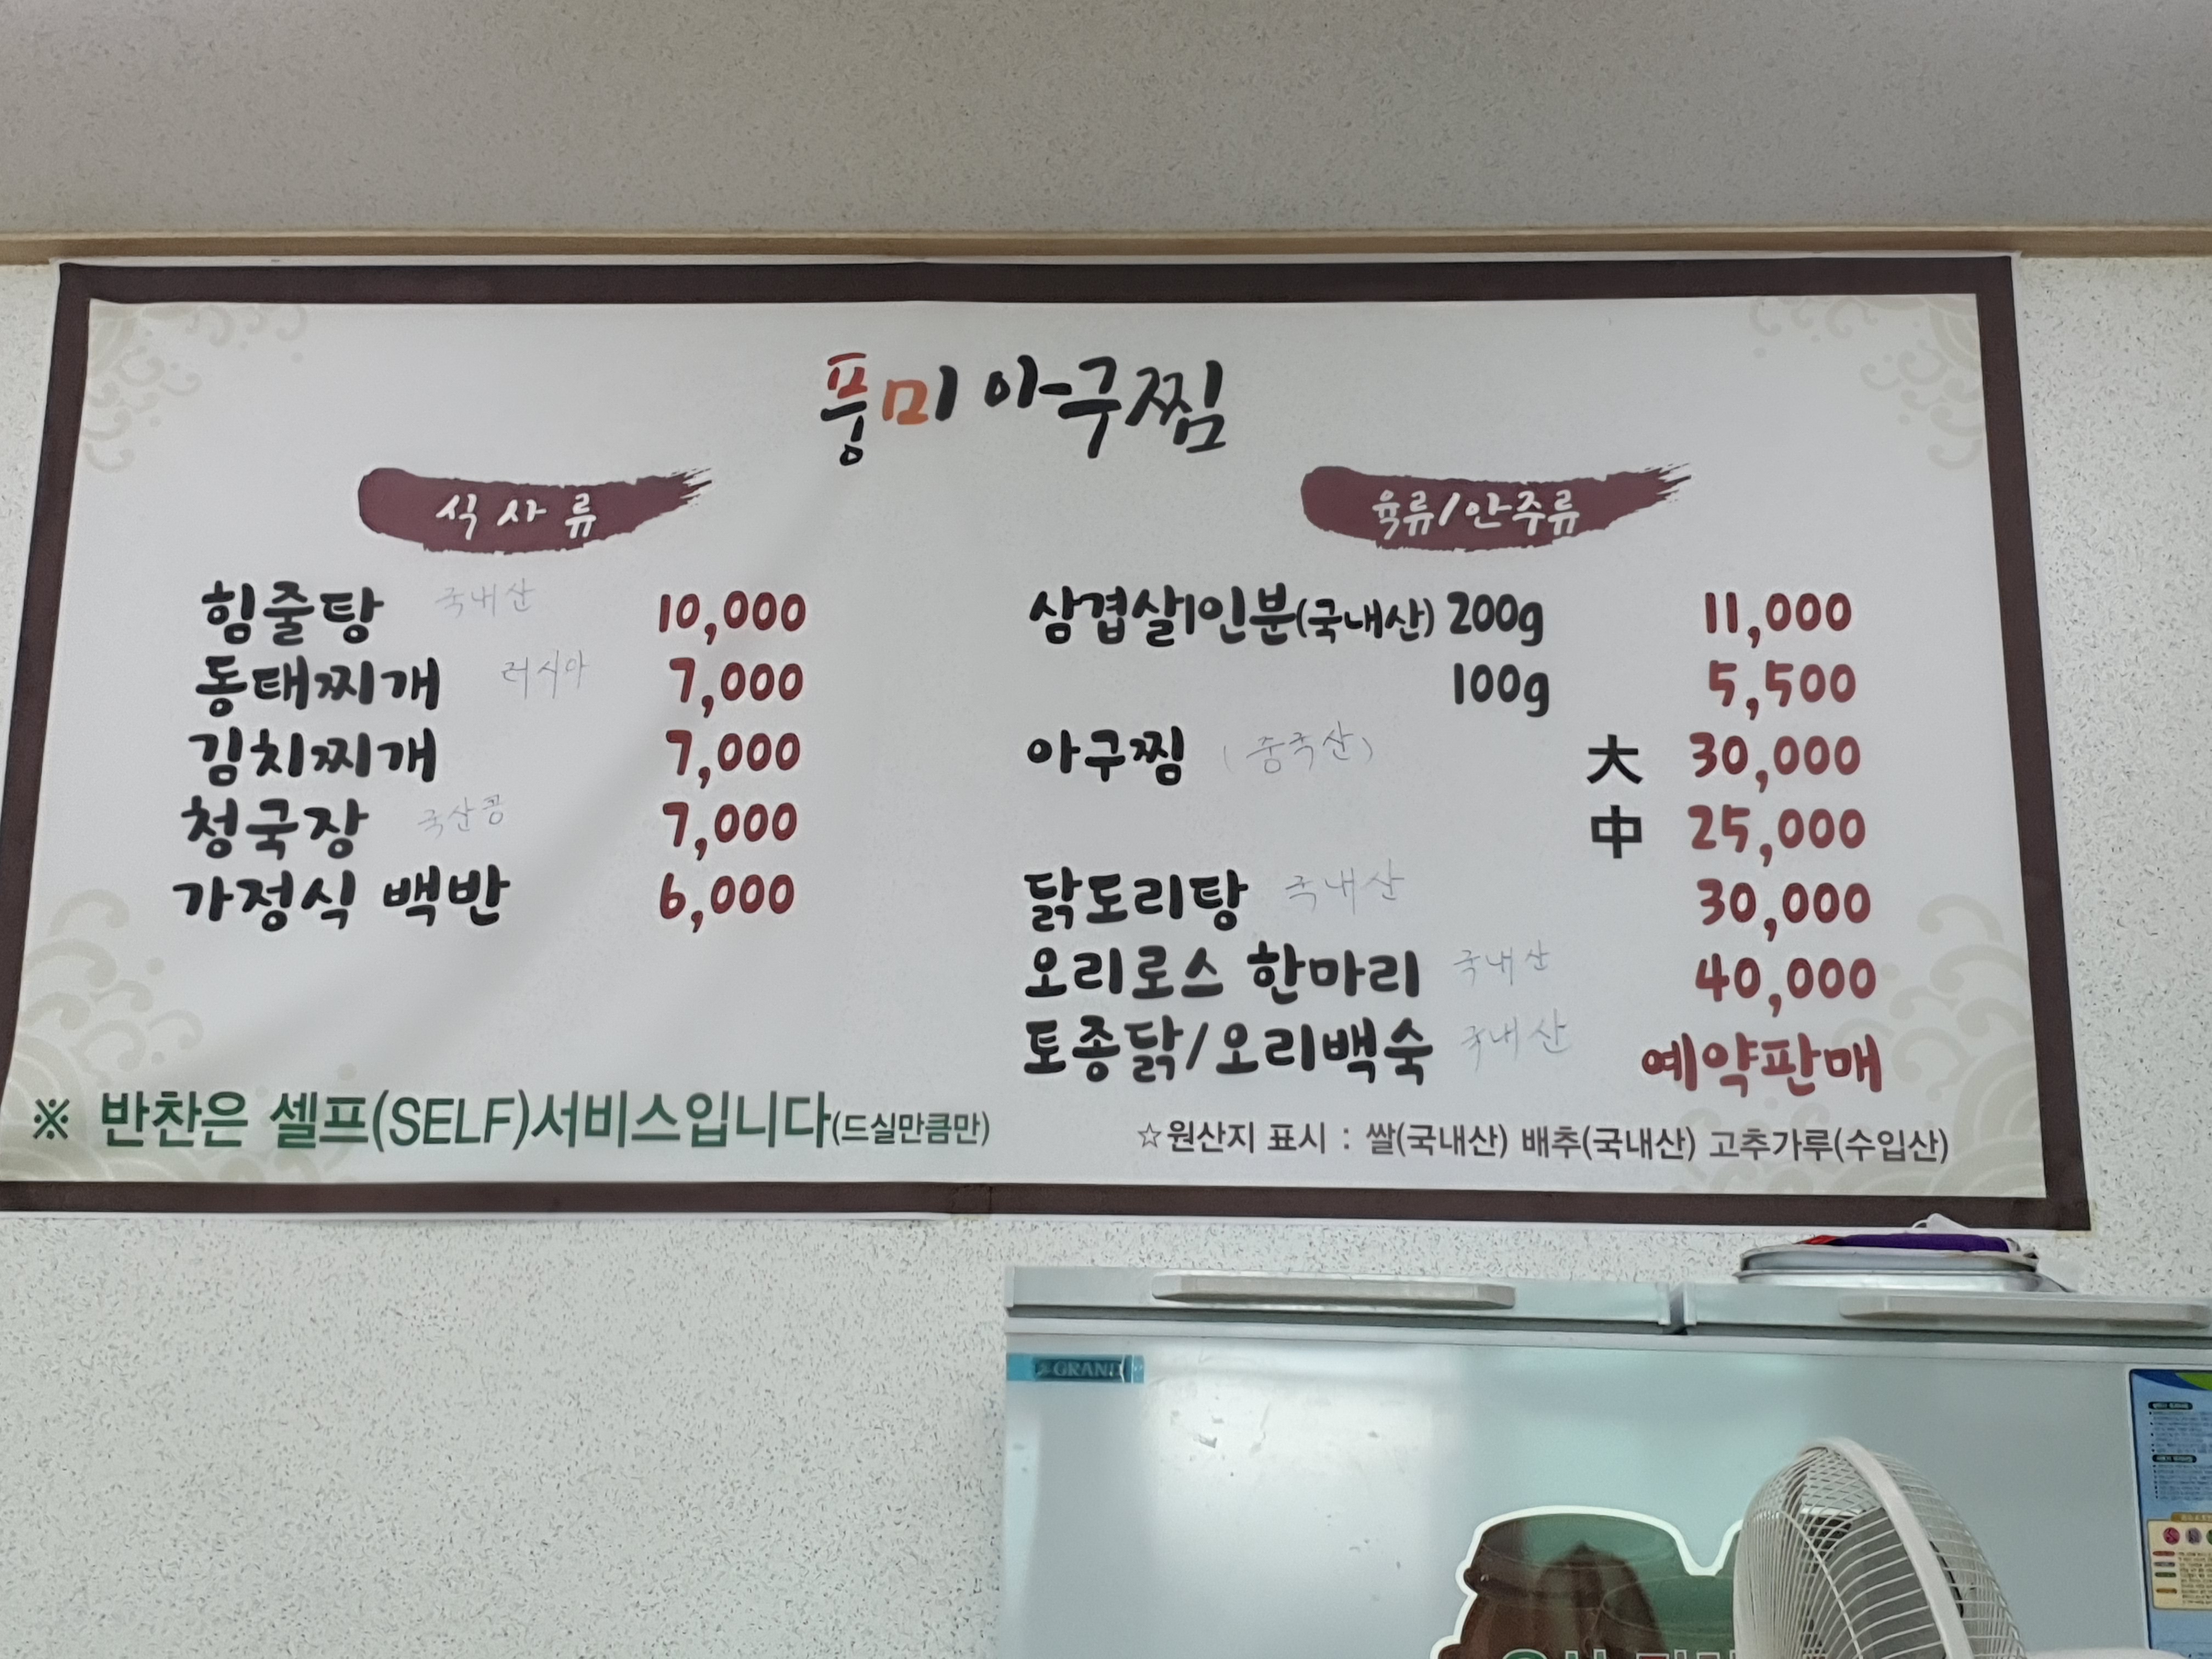 풍미 아구찜
식사류
힘줄탕 국내산 10,000
동태찌개 러시아 7,000
김치찌개 7,000
청국장 국산콩 7,000
가정식 백반 6,000
※ 반찬은 셀프(SELF)서비스입니다(드실만큼만)
육류/안주류
삼겹살1인분(국내산) 200g 11,000
100g 5,500
아구찜 (중국산) 大 30,000
中 25,000
닭도리탕 국내산 30,000
오리로스 한마리 국내산 40,000
토종닭/오리백숙 국내산 예약판매
☆원산지 표시 : 쌀(국내산) 배추(국내산) 고추가루(수입산)
GRAND